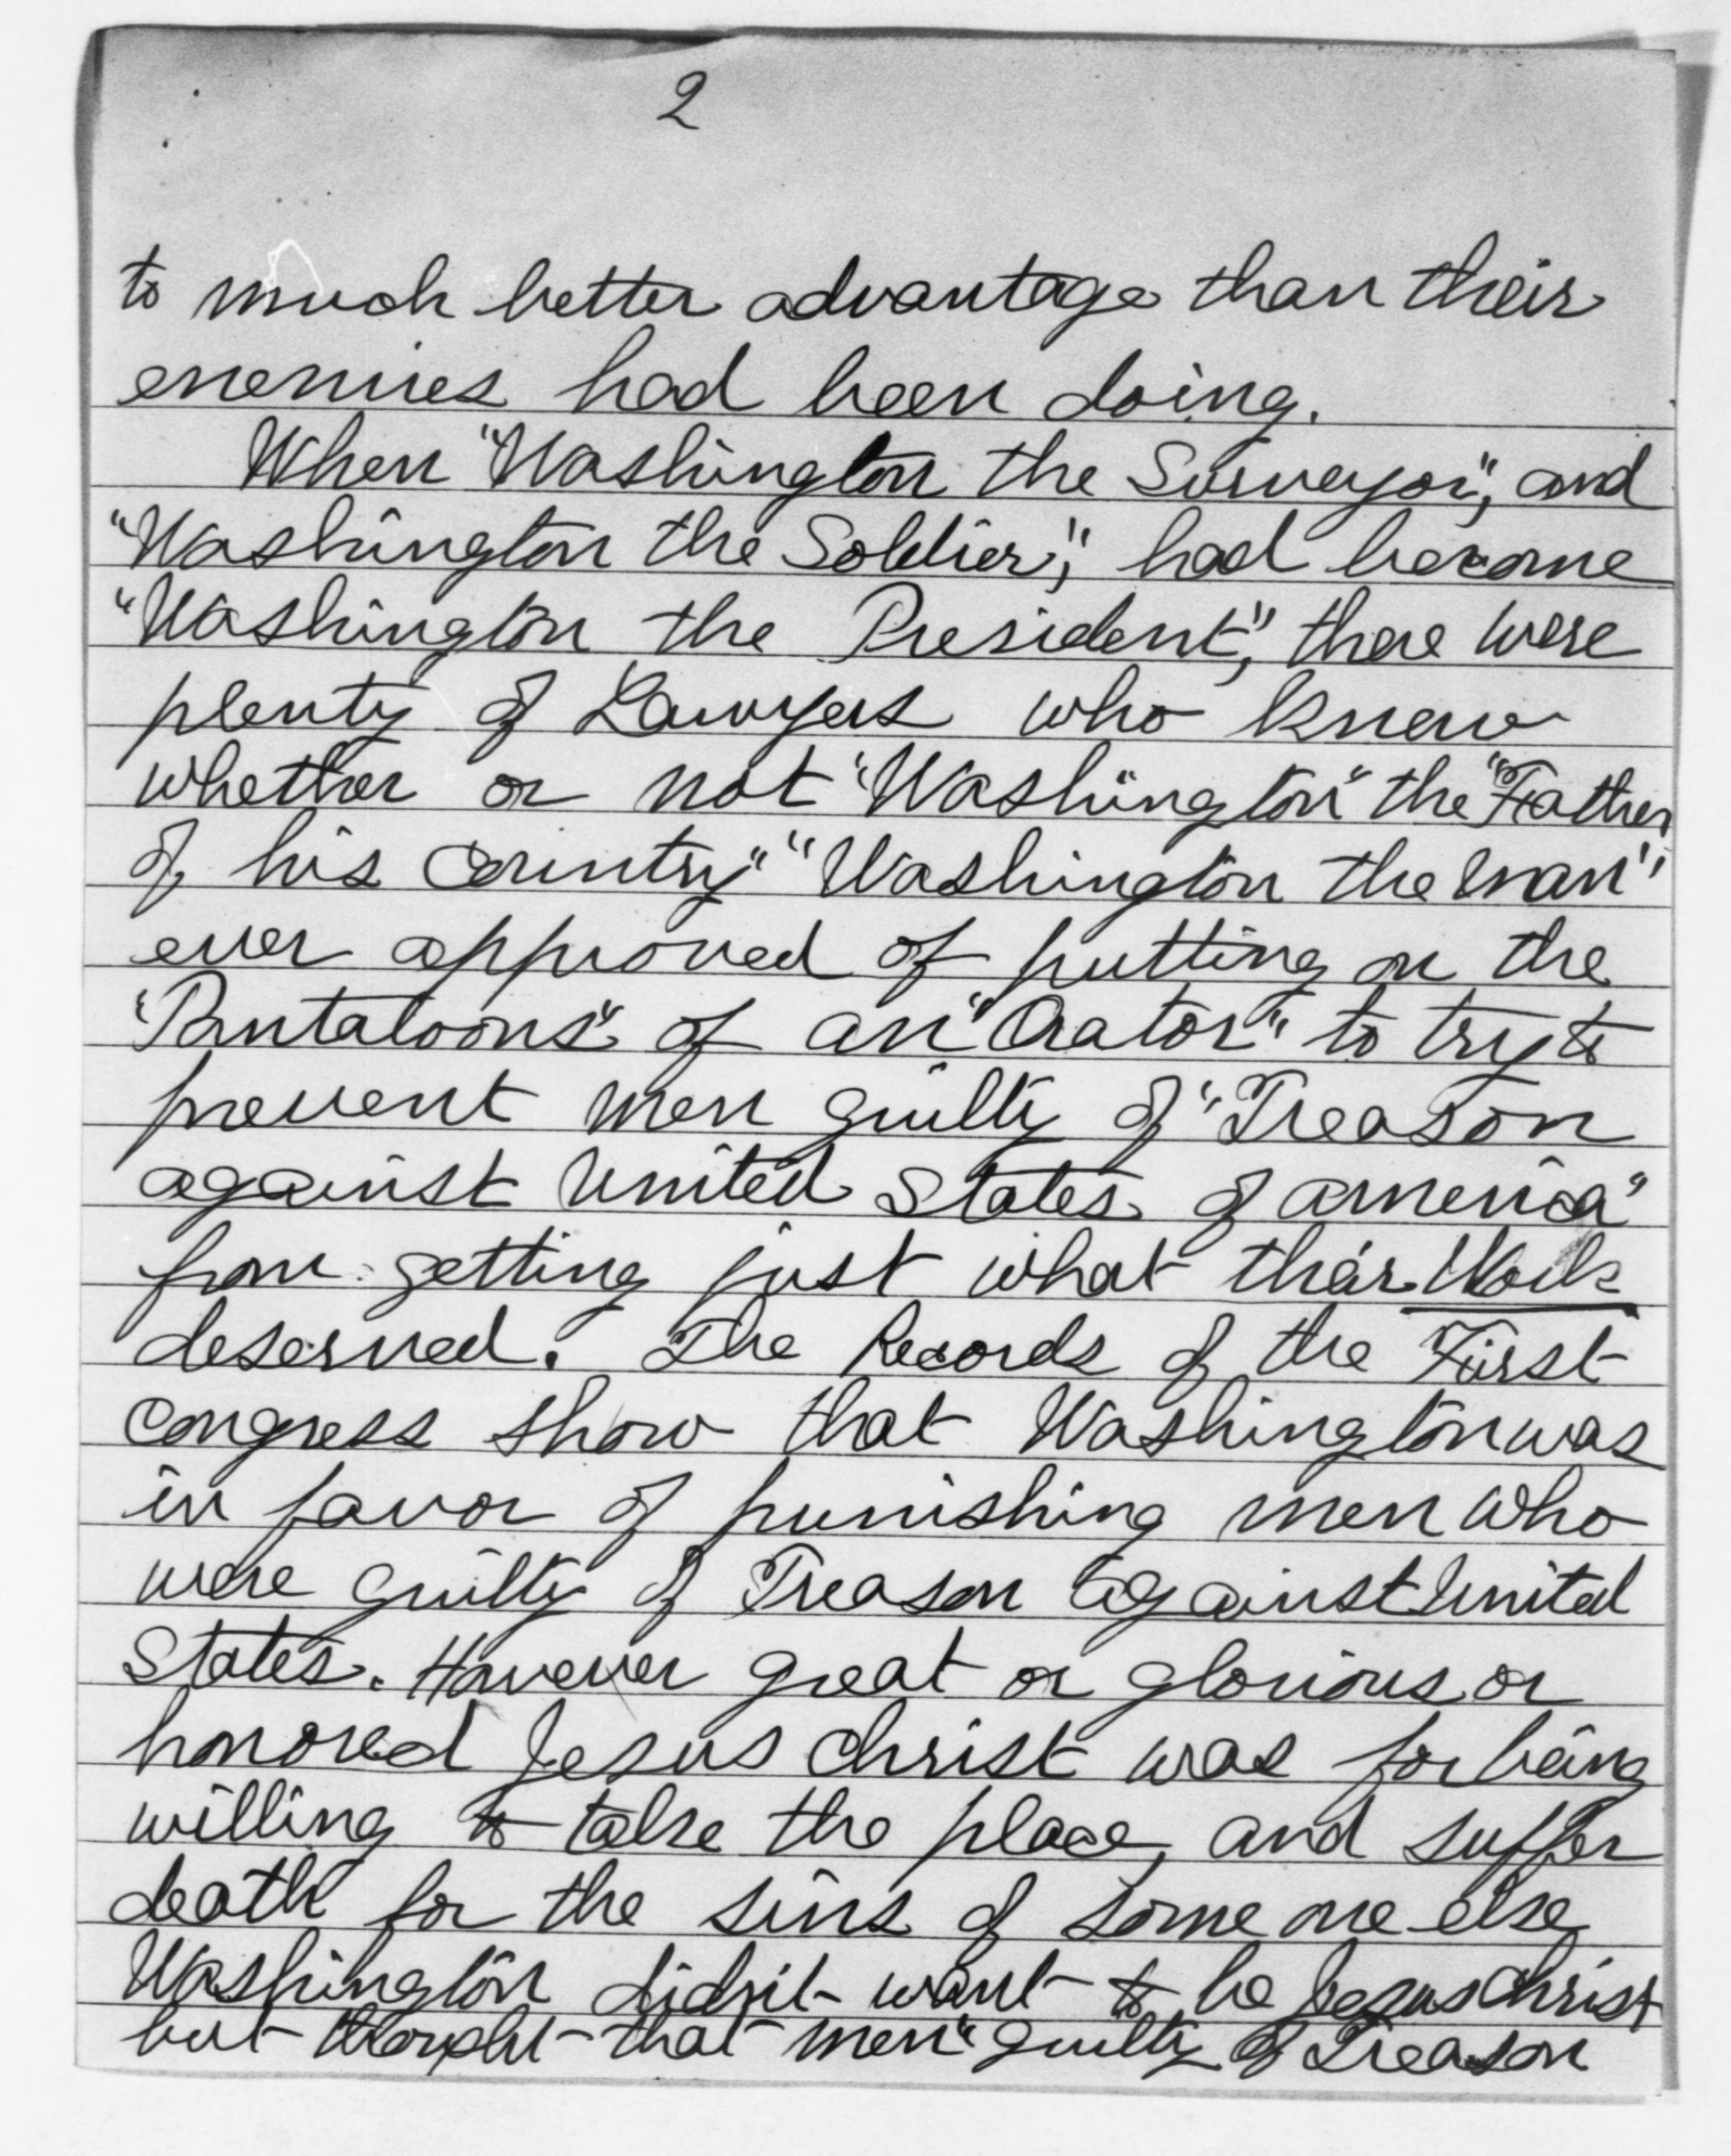 2
to much better advantage than their
enemies had been doing.
When "Washington the Surveyor", and
"Washington the Soldier", had become
"Washington the President", there were
plenty of Lawyers who knew
whether or not "Washington" the "Father
of his Country" "Washington the man"
ever approved of putting on the
"Pantaloons" of an "Orator" to try to
prevent men guilty of "Treason
against United States of america"
from getting just what their Work
deserved. The Records of the First
Congress show that Washington was
in favor of punishing men who
were guilty of Treason against United
States. However great or glorious or
honored Jesus Christ was for being
willing to take the place, and suffer
death for the sins of some one else,
Washington didn't want to be Jesus Christ
but thought that men "guilty of Treason